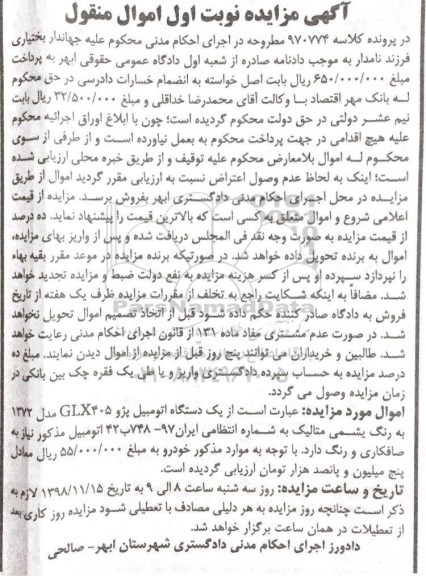 آگهی مزایده نوبت اول اموال منقول
در پرونده کلاسه ۹۷۰۷۷۴ مطروحه در اجرای احکام مدنی محکوم علیه جهاندار بختیاری
فرزند نامدار به موجب دادنامه صادره از شعبه اول دادگاه عمومی حقوقی ابهر به پرداخت
مبلغ ۶۵۰/۰۰۰/۰۰۰ ریال بابت اصل خواسته به انضمام خسارات دادرسی در حق محکوم
له بانک مهر اقتصاد با وکالت آقای محمدرضا خدافلی و مبلغ ۳۲/۵۰۰/۰۰۰ ریال بابت
نیم عشر دولتی در حق دولت محکوم گردیده است؛ چون با ابلاغ اوراق اجرائیه محکوم
علیه هیچ اقدامی در جهت پرداخت محکوم به بعمل نیاورده است و از طرفی از سوی
محکوم له اموال بلامعارض محکوم علیه توقیف و از طریق خبره محلی ارزیابی شده
است؛ اینک به لحاظ عدم وصول اعتراض نسبت به ارزیابی مقرر گردید اموال از طریق
مزایده در محل اجرای احکام مدنی دادگستری ابهر بفروش برسد. مزایده از قیمت
اعلامی شروع و اموال متعلق به کسی است که بالاترین قیمت را پیشنهاد نماید. ده درصد
از قیمت مزایده به صورت وجه نقد فی المجلس دریافت شده و پس از واریز بهای مزایده،
اموال به برنده تحویل داده خواهد شد. در صورتیکه برنده مزایده در موعد مقرر بقیه بهاء
را نپردازد سپرده او پس از کسر هزینه مزایده به نفع دولت ضبط و مزایده تجدید خواهد
شد. مضافاً به اینکه شکایت راجع به تخلف از مقررات مزایده ظرف یک هفته از تاریخ
فروش به دادگاه صادر کننده حکم داده شود قبل از اتخاذ تصمیم اموال تحویل نخواهد
شد. در صورت عدم مشتری مفاد ماده ۱۳۱ از قانون اجرای احکام مدنی رعایت خواهد
شد. طالبین و خریداران می توانند پنج روز قبل از مزایده از اموال دیدن نمایند. مبلغ ده
درصد مزایده به حساب سپرده دادگستری واریز و یا طی یک فقره چک بین بانکی در
زمان مزایده وصول می گردد.
اموال مورد مزایده: عبارت است از یک دستگاه اتومبیل پژو GLX۴۰۵ مدل ۱۳۷۲
به رنگ یشمی متالیک به شماره انتظامی ایران۹۷- ۷۴۸ب۴۲ اتومبیل مذکور نیاز به
صافکاری و رنگ دارد. با توجه به موارد مذکور خودرو به مبلغ ۵۵/۰۰۰/۰۰۰ ریال معادل
پنج میلیون و پانصد هزار تومان ارزیابی گردیده است.
تاریخ و ساعت مزایده: روز سه شنبه ساعت ۸ الی ۹ به تاریخ ۱۳۹۸/۱۱/۱۵ لازم به
ذکر است چنانچه روز مزایده به هر دلیلی مصادف با تعطیلی شود مزایده روز کاری بعد
از تعطیلات در همان ساعت برگزار خواهد شد.
دادورز اجرای احکام مدنی دادگستری شهرستان ابهر- صالحی